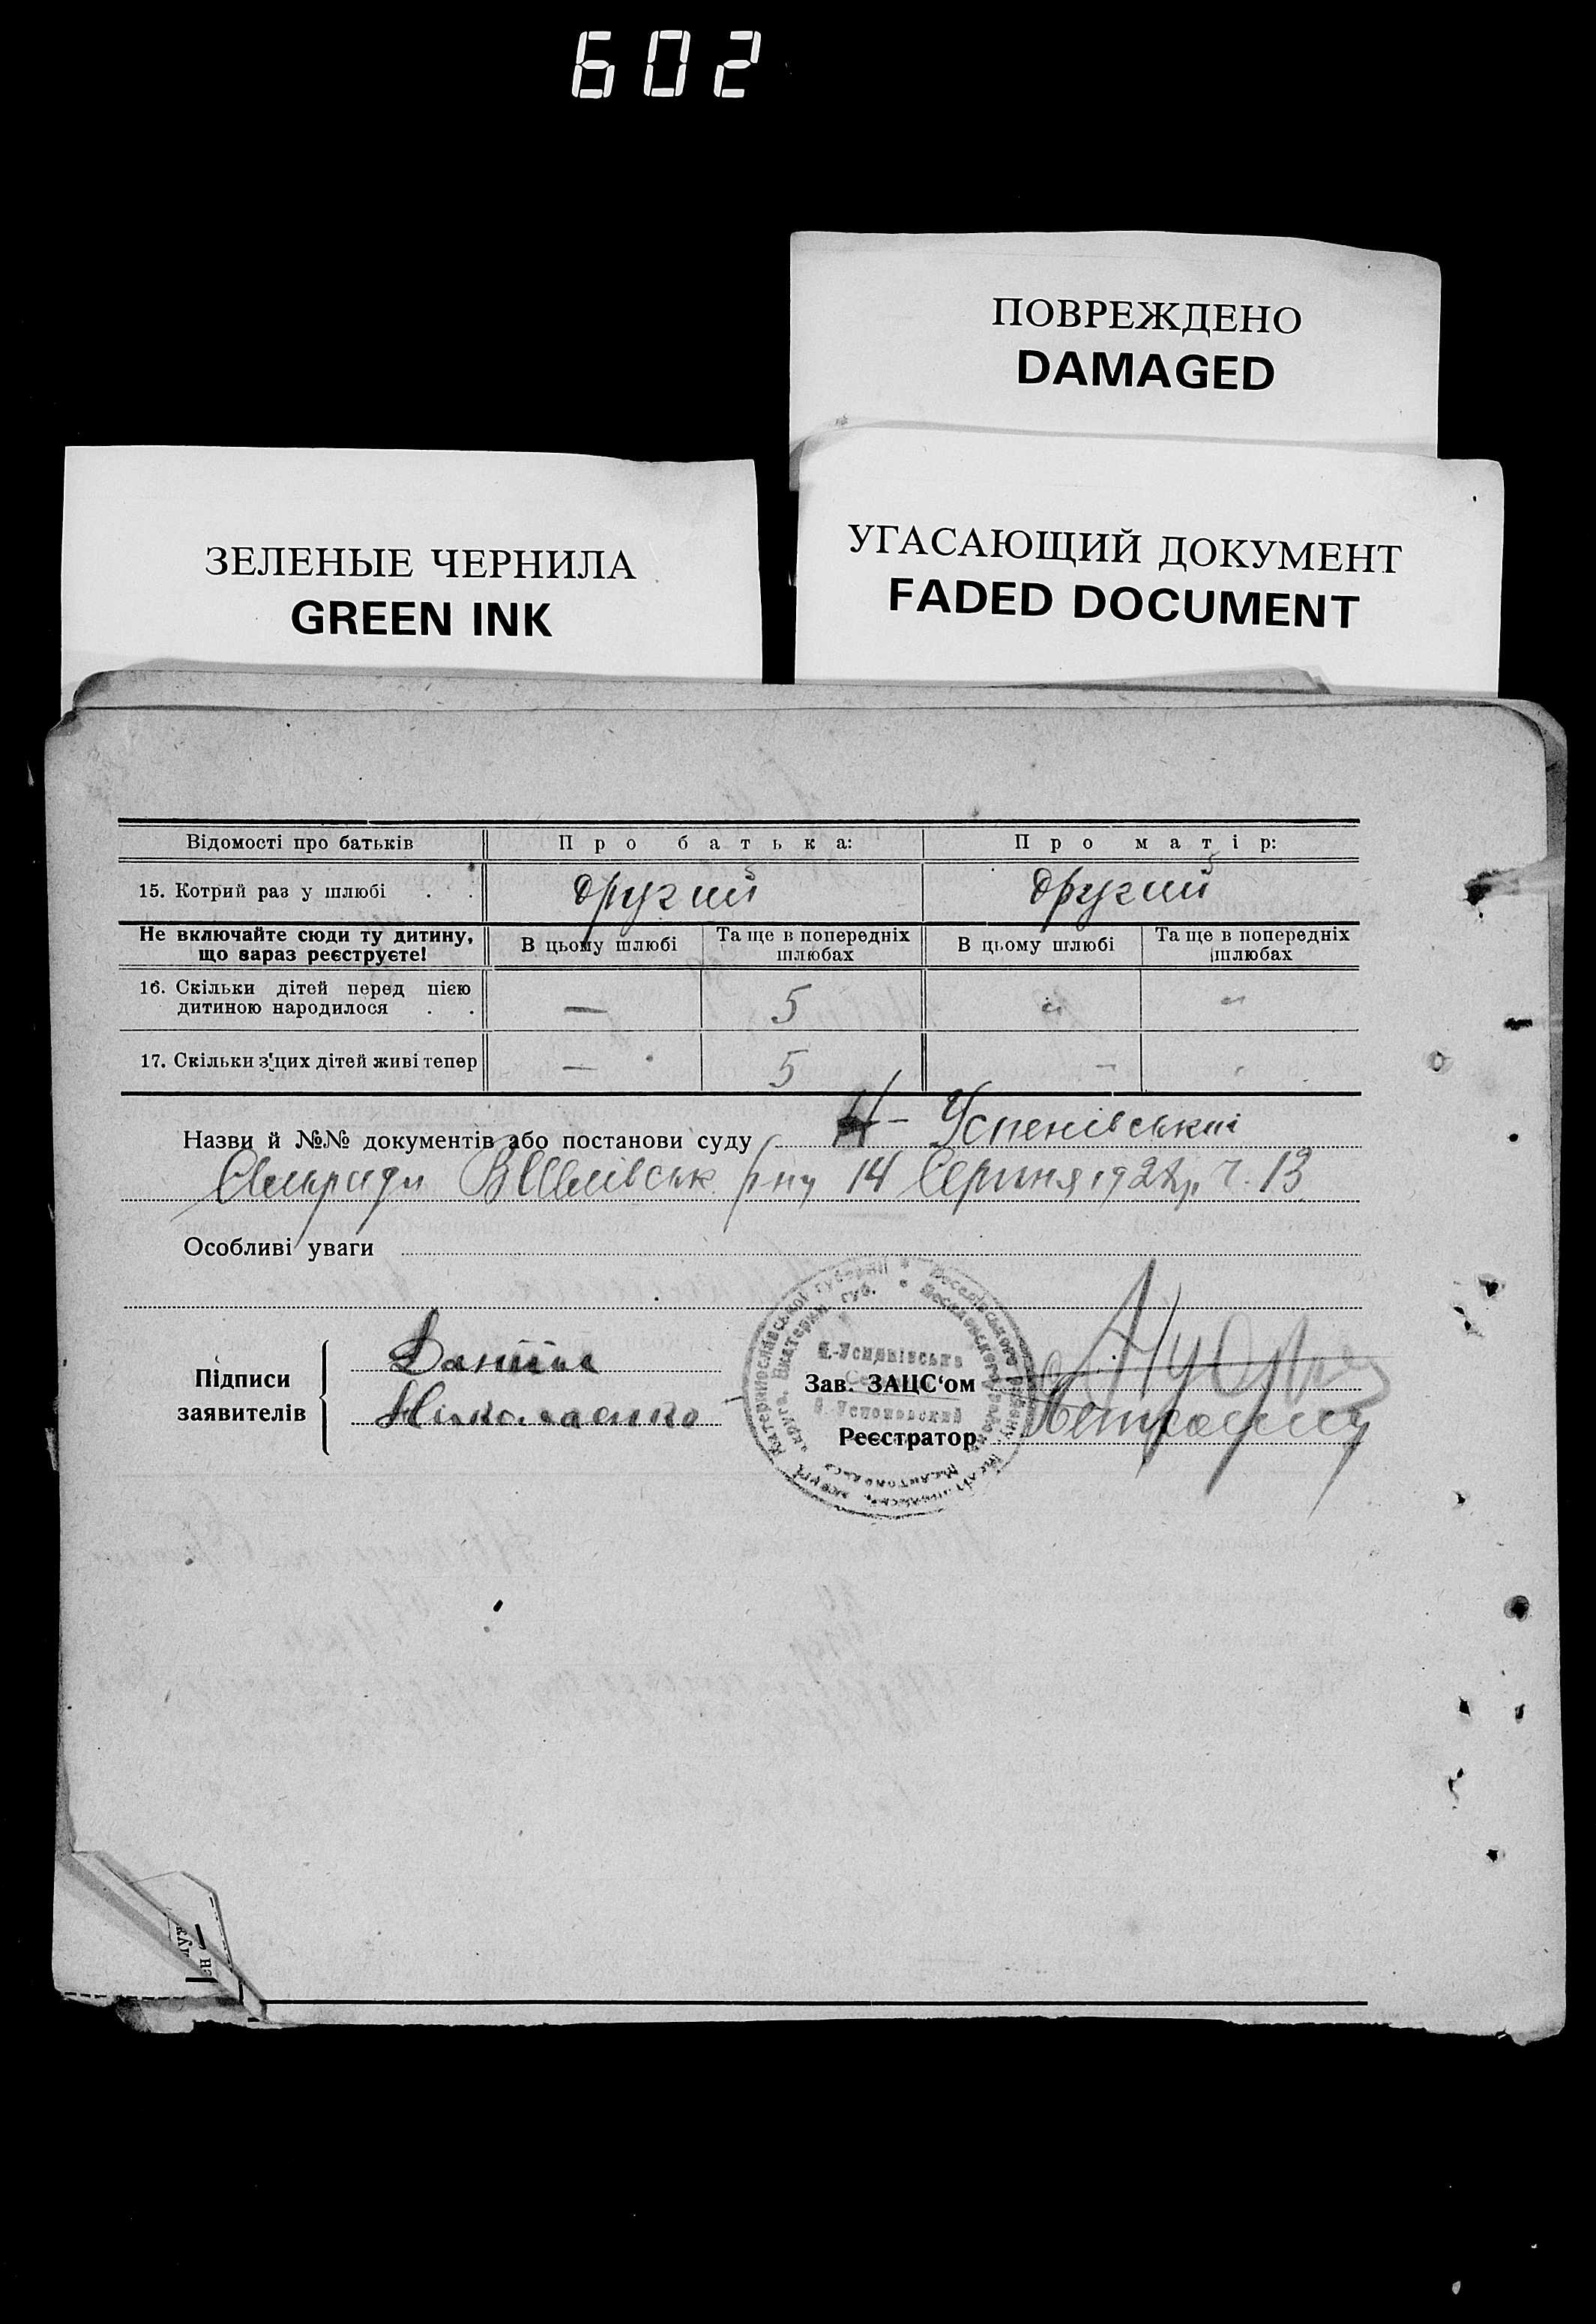 602
ПОВРЕЖДЕНО
DAMAGED
ЗЕЛЕНЫЕ ЧЕРНИЛА
GREEN INK
УГАСАЮЩИЙ ДОКУМЕНТ
FADED DOCUMENT
Відомості про батьків Про батька: Про матір:
15. Котрий раз у шлюбі . . другий другий
Не включайте сюди ту дитину, що зараз реєструєте! В цьому шлюбі Та ще в попередніх шлюбах В цьому шлюбі Та ще в попередніх шлюбах
16. Скільки дітей перед цією дитиною народилося . . — 5 " "
17. Скільки з'цих дітей живі тепер — 5 -
Назви й №№ документів або постанови суду Н- Успенівський
14 Серпня 192 ч. 13
Особливі уваги
Підписи заявителів
Данііл
Ніколаенко
Катеринославської губернії * Веселівського району
Н.-Успенівська
Н.-Успеновский
Зав. ЗАЦС'ом
Реєстратор